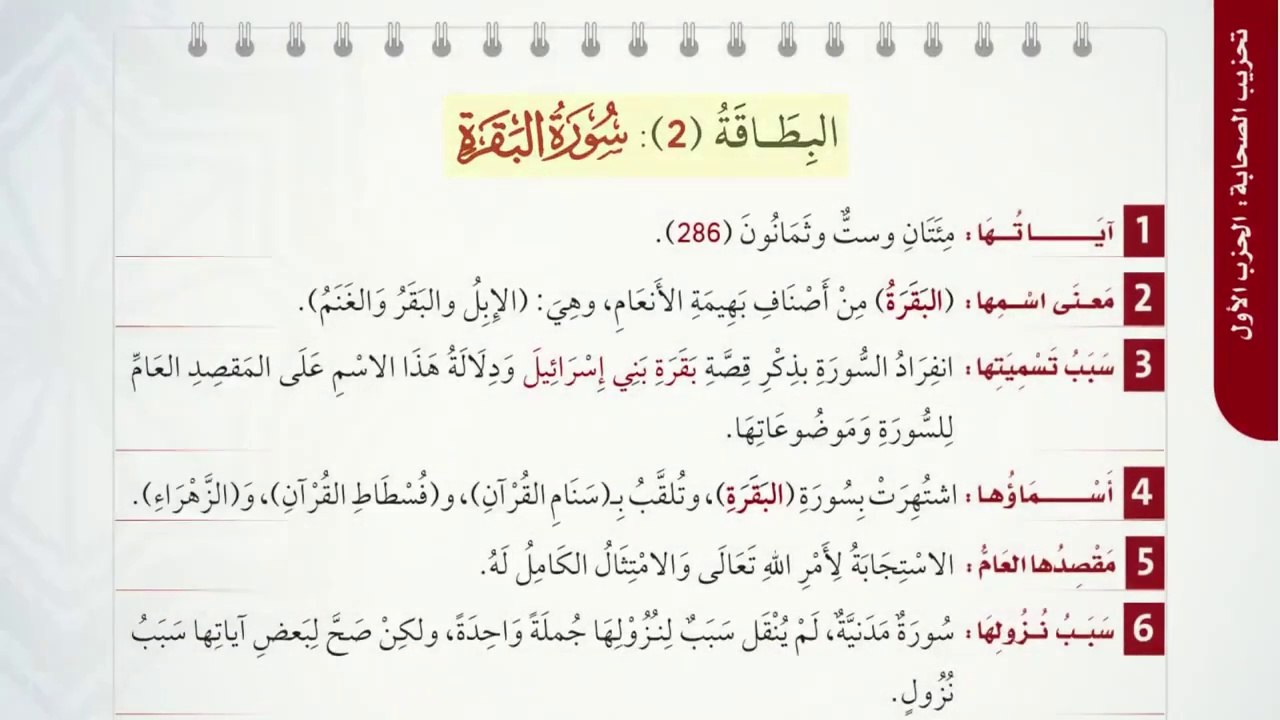 البِطَـاقَةُ (2): سُورَةُ البَقَرَةِ
1 آيَـــاتُـهَا: مِئَتَانِ وستٌّ وثَمَانُونَ (286).
2 مَعنَى اسْـمِها: (البَقَرَةُ) مِنْ أَصْنَافِ بَهِيمَةِ الأَنعَامِ، وهِيَ: (الإِبِلُ والبَقَرُ وَالغَنَمُ).
3 سَبَبُ تَسْمِيَتِها: انفِرَادُ السُّورَةِ بِذِكْرِ قِصَّةِ بَقَرَةِ بَنِي إِسْرَائِيلَ وَدِلَالَةُ هَذَا الاسْمِ عَلَى المَقصِدِ العَامِّ
لِلسُّورَةِ وَمَوضُوعَاتِهَا.
4 أَسْـــمَاؤُها: اشتُهِرَتْ بِسُورَةِ (البَقَرَةِ)، وتُلقَّبُ بِـ(سَنَامِ القُرْآنِ)، و(فُسْطَاطِ القُرْآنِ)، وَ(الزَّهْرَاءِ).
5 مَقْصِدُها العَامُّ: الاسْتِجَابَةُ لِأَمْرِ اللهِ تَعَالَى وَالامْتِثَالُ الكَامِلُ لَهُ.
6 سَبَبُ نُـزُولِهَا: سُورَةٌ مَدَنِيَّةٌ، لَمْ يُنْقَل سَبَبٌ لِنُزُوْلِهَا جُملَةً وَاحِدَةً، ولكِنْ صَحَّ لِبَعضِ آياتِها سَبَبُ
نُزُولٍ.
تحزيب الصحابة: الحزب الأول